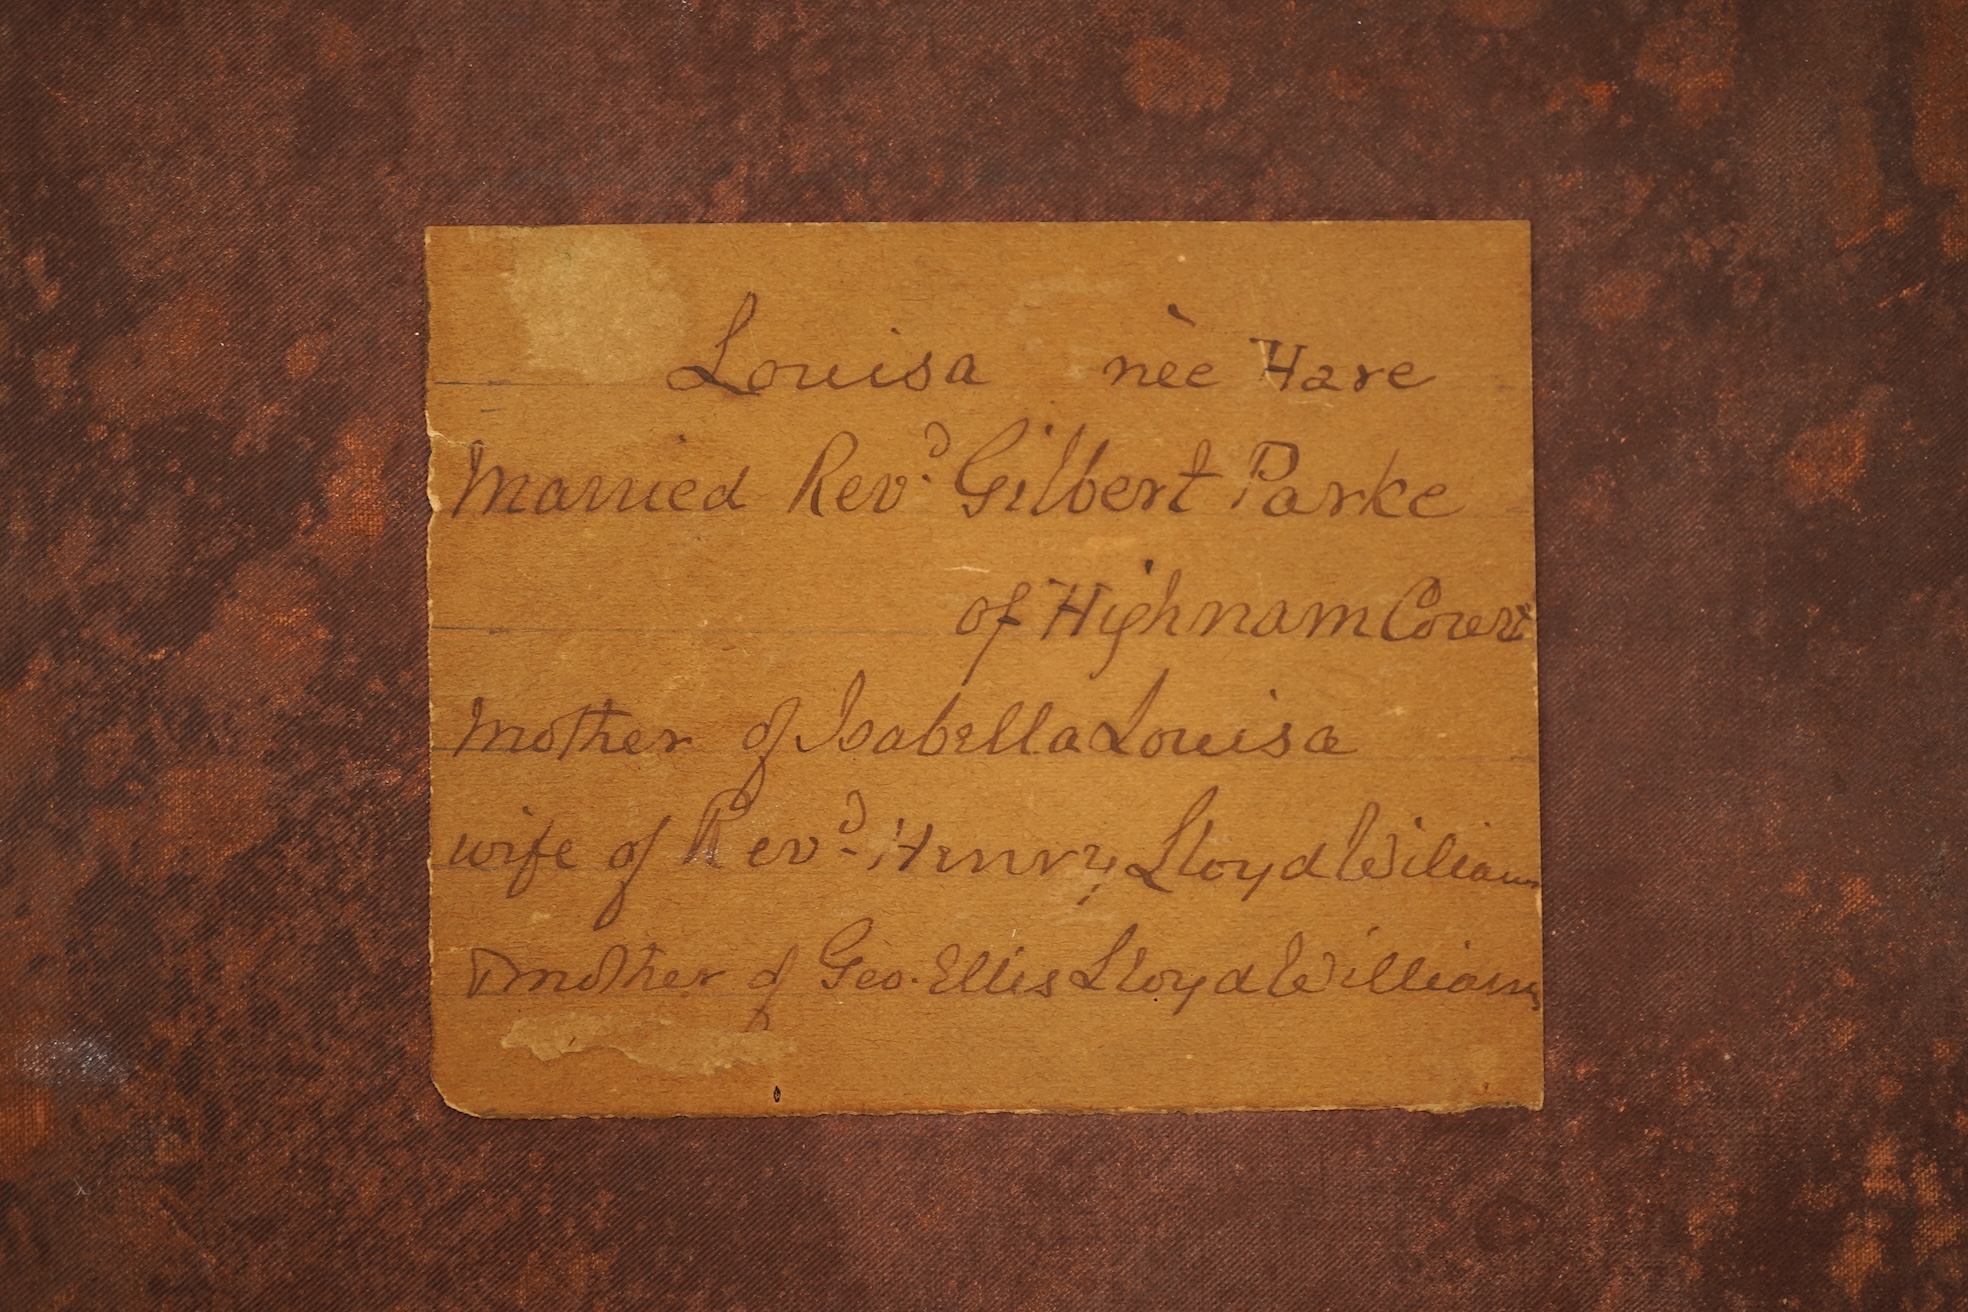 Louisa nèe Hare
Married Revᵈ. Gilbert Parke
of Highnam Court
Mother of Isabella Louisa
wife of Revᵈ- Henry Lloyd Wiliams
& mother of Geo. Ellis Lloyd Williams